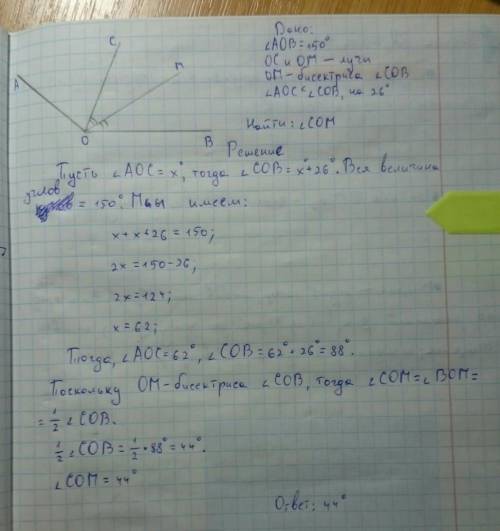 C
M
A
O
B
Дано:
∠AOB=150°
OC и OM — лучи
OM-бисектриса ∠COB
∠AOC<∠COB, на 26°
Найти: ∠COM
Решение
Пусть ∠AOC=x°, тогда ∠COB=x°+26°. Вся величина
углов = 150°. Мы имеем:
x+x+26=150;
2x=150-26;
2x=124;
x=62;
Тогда, ∠AOC=62°, ∠COB=62°+26°=88°.
Поскольку OM-бисектриса ∠COB, тогда ∠COM=∠BOM=
=1/2 ∠COB.
1/2 ∠COB=1/2•88°=44°.
∠COM=44°
Ответ: 44°